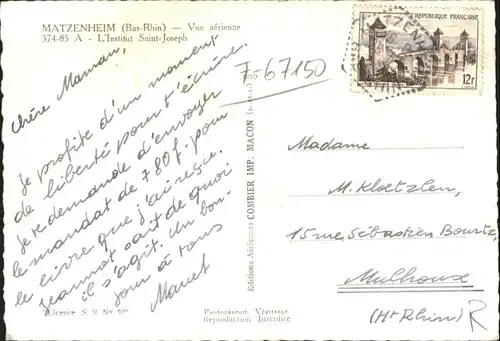 MATZENHEIM (Bas-Rhin) — Vue aérienne
374-85 A - L'Institut Saint-Joseph
Chère Maman,
Je profite d'un moment
de liberté pour t'écrire.
Je te demande d'envoyer
le mandat de 780 f. pour
le livre que j'ai reçu.
Jeannot sait de quoi
il s'agit. Un bon-
jour à tous
Marcel
Licence S N N°
Photographie Véritable
Reproduction Interdite
7-67150
Editions Aériennes COMBIER IMP. MACON
REPUBLIQUE FRANÇAISE
12f
Madame
M. Kloetzlen,
15 rue Sébastien Bourtz
Mulhouse
(Ht Rhin)
R